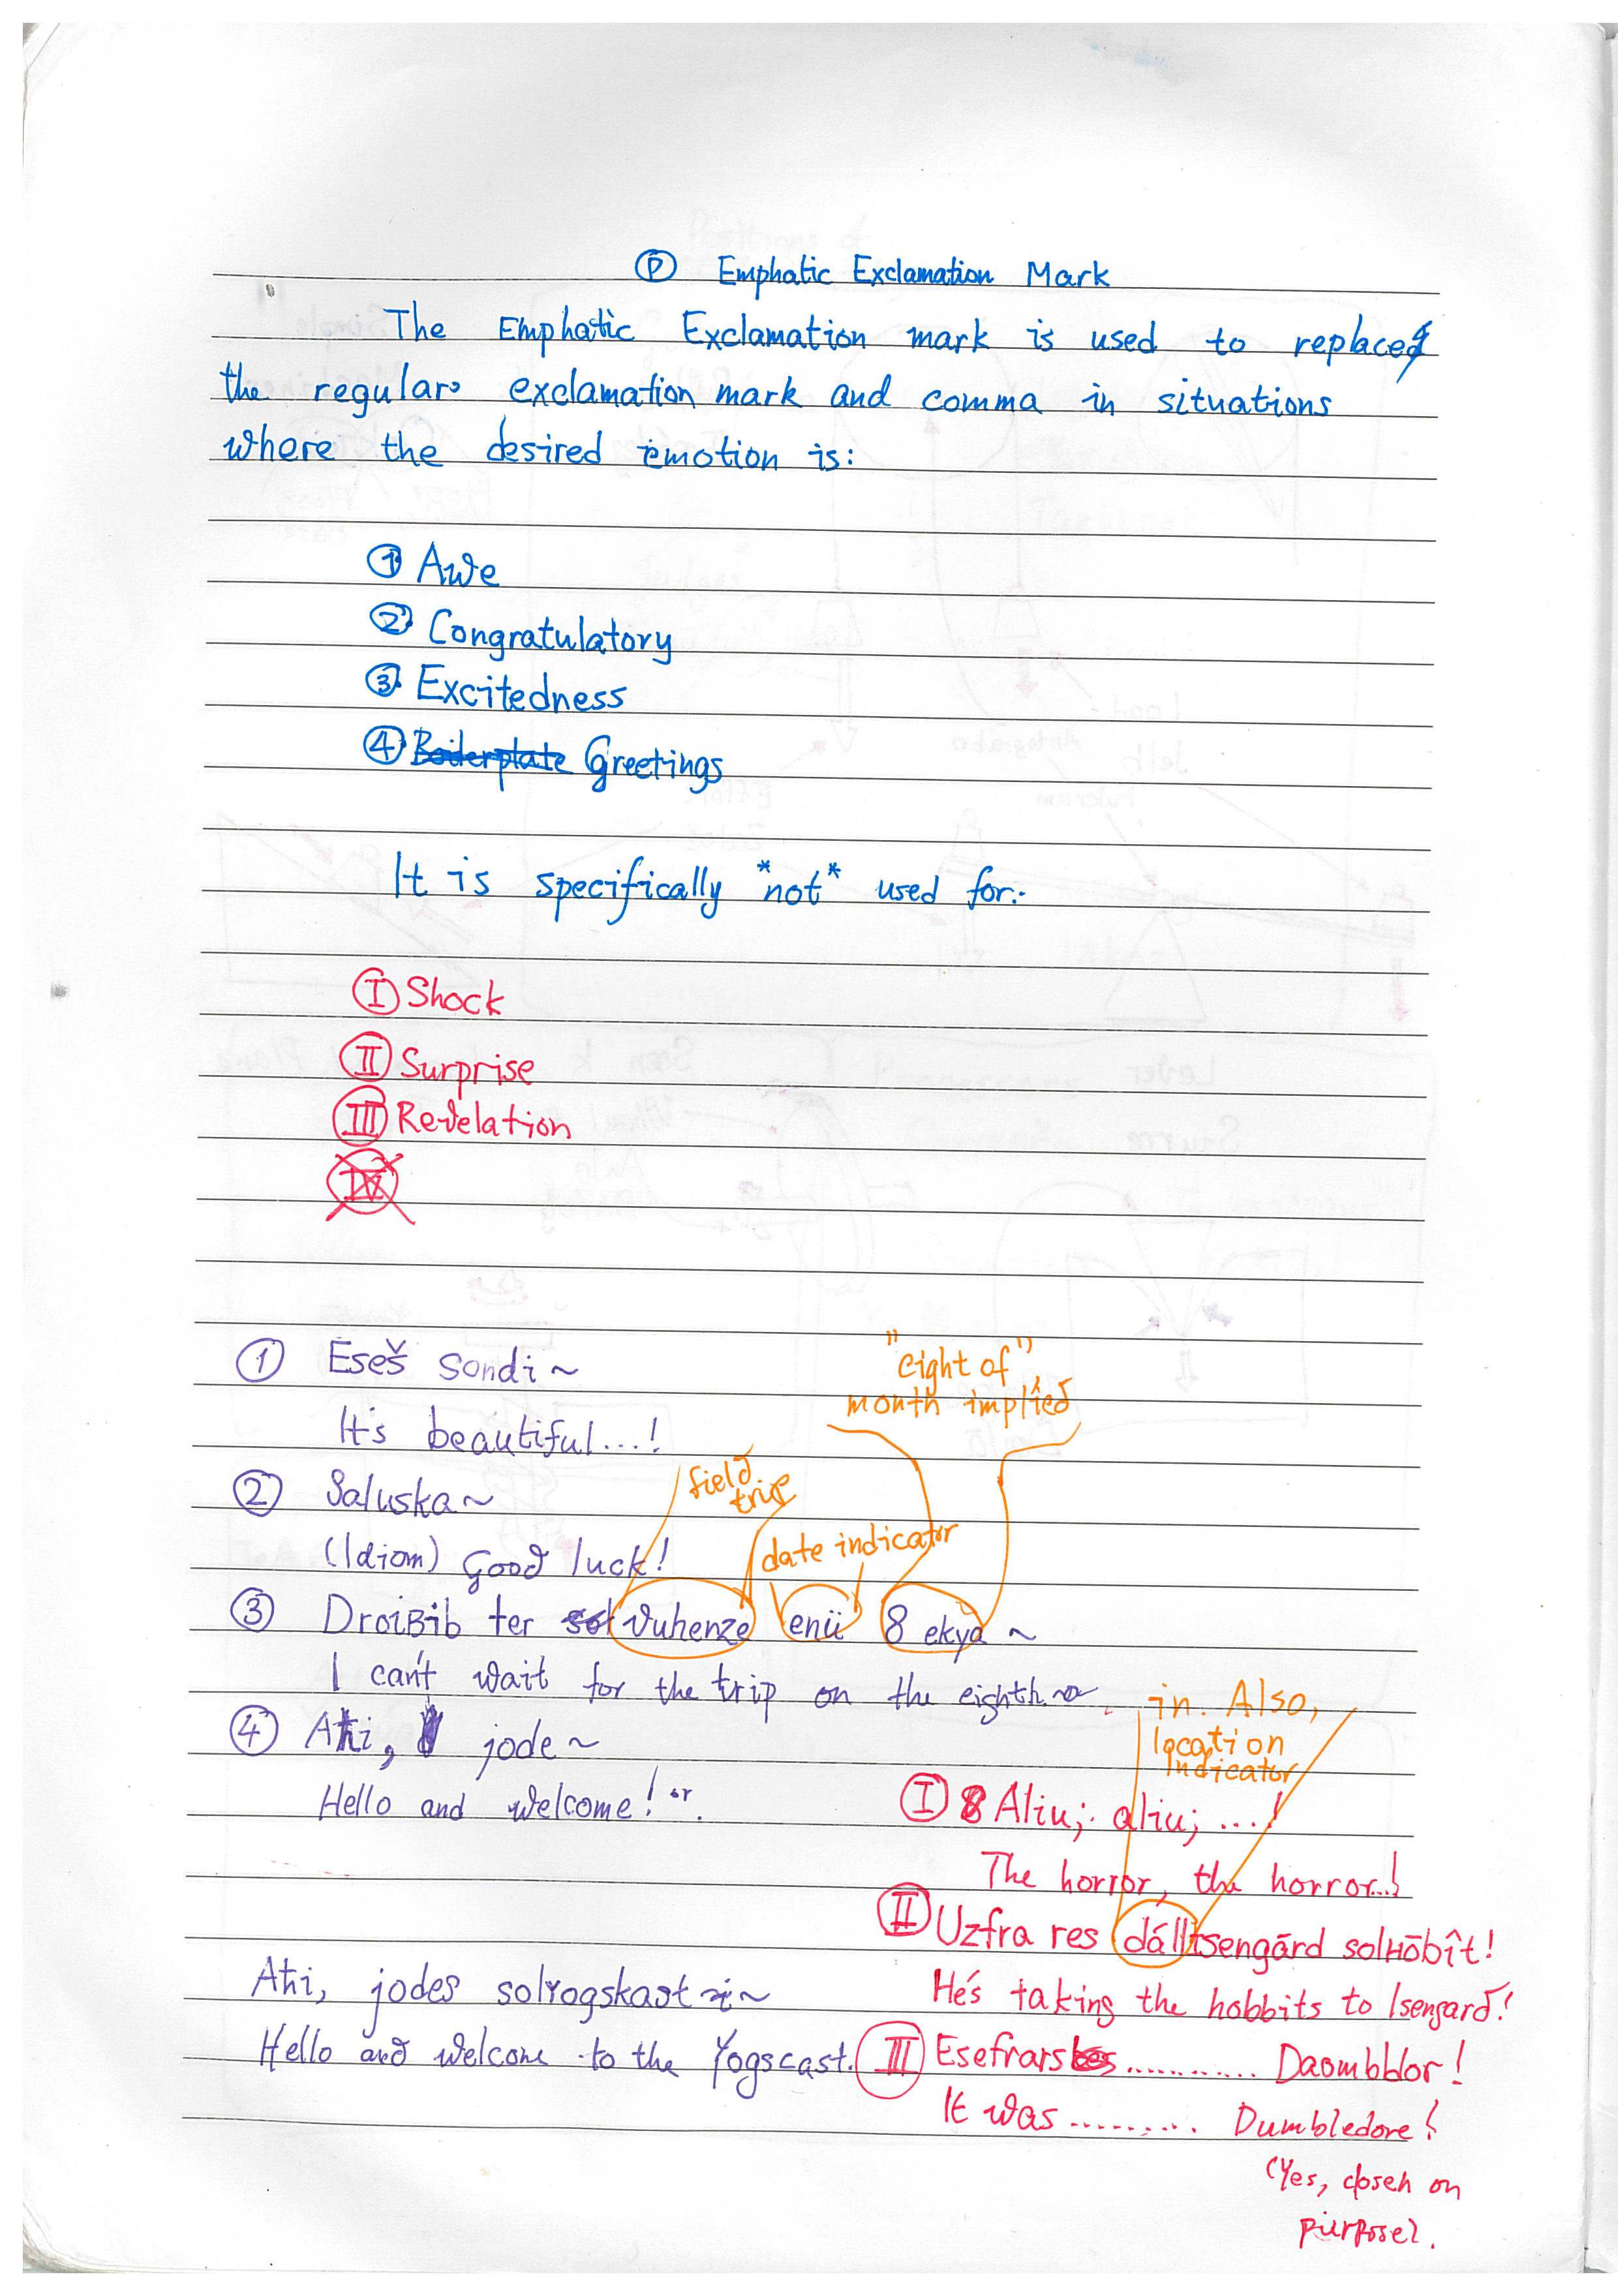 Ⓟ Emphatic Exclamation Mark
The Emphatic Exclamation mark is used to replace
the regular exclamation mark and comma in situations
where the desired emotion is:
① Awe
② Congratulatory
③ Excitedness
④ Boiderplate Greetings
It is specifically *not* used for:-
Ⅰ Shock
Ⅱ Surprise
Ⅲ Revelation
Ⅳ
① Eseš sondi~
It's beautiful...!
"eight of"
month implied
② Saluska~
(Idiom) Good luck!
field
trip
date indicator
③ DroiBib ter vuhenze enü 8 ekya ~
I can't wait for the trip on the eighth
④ Aħi, jode~
Hello and welcome! or.
in. Also,
location
indicator
Ⅰ Aliu; aliu; ....!
The horror, the horror...!
Ⅱ Uzfra res dállIsengārd solHōbît!
He's taking the hobbits to Isengard!
Aħi, jodes solYogskast ~
Hello and welcome to the Yogscast.
Ⅲ Esefrars ........... Daombldor!
It was ......... Dumbledore!
(Yes, chosen on
purpose).